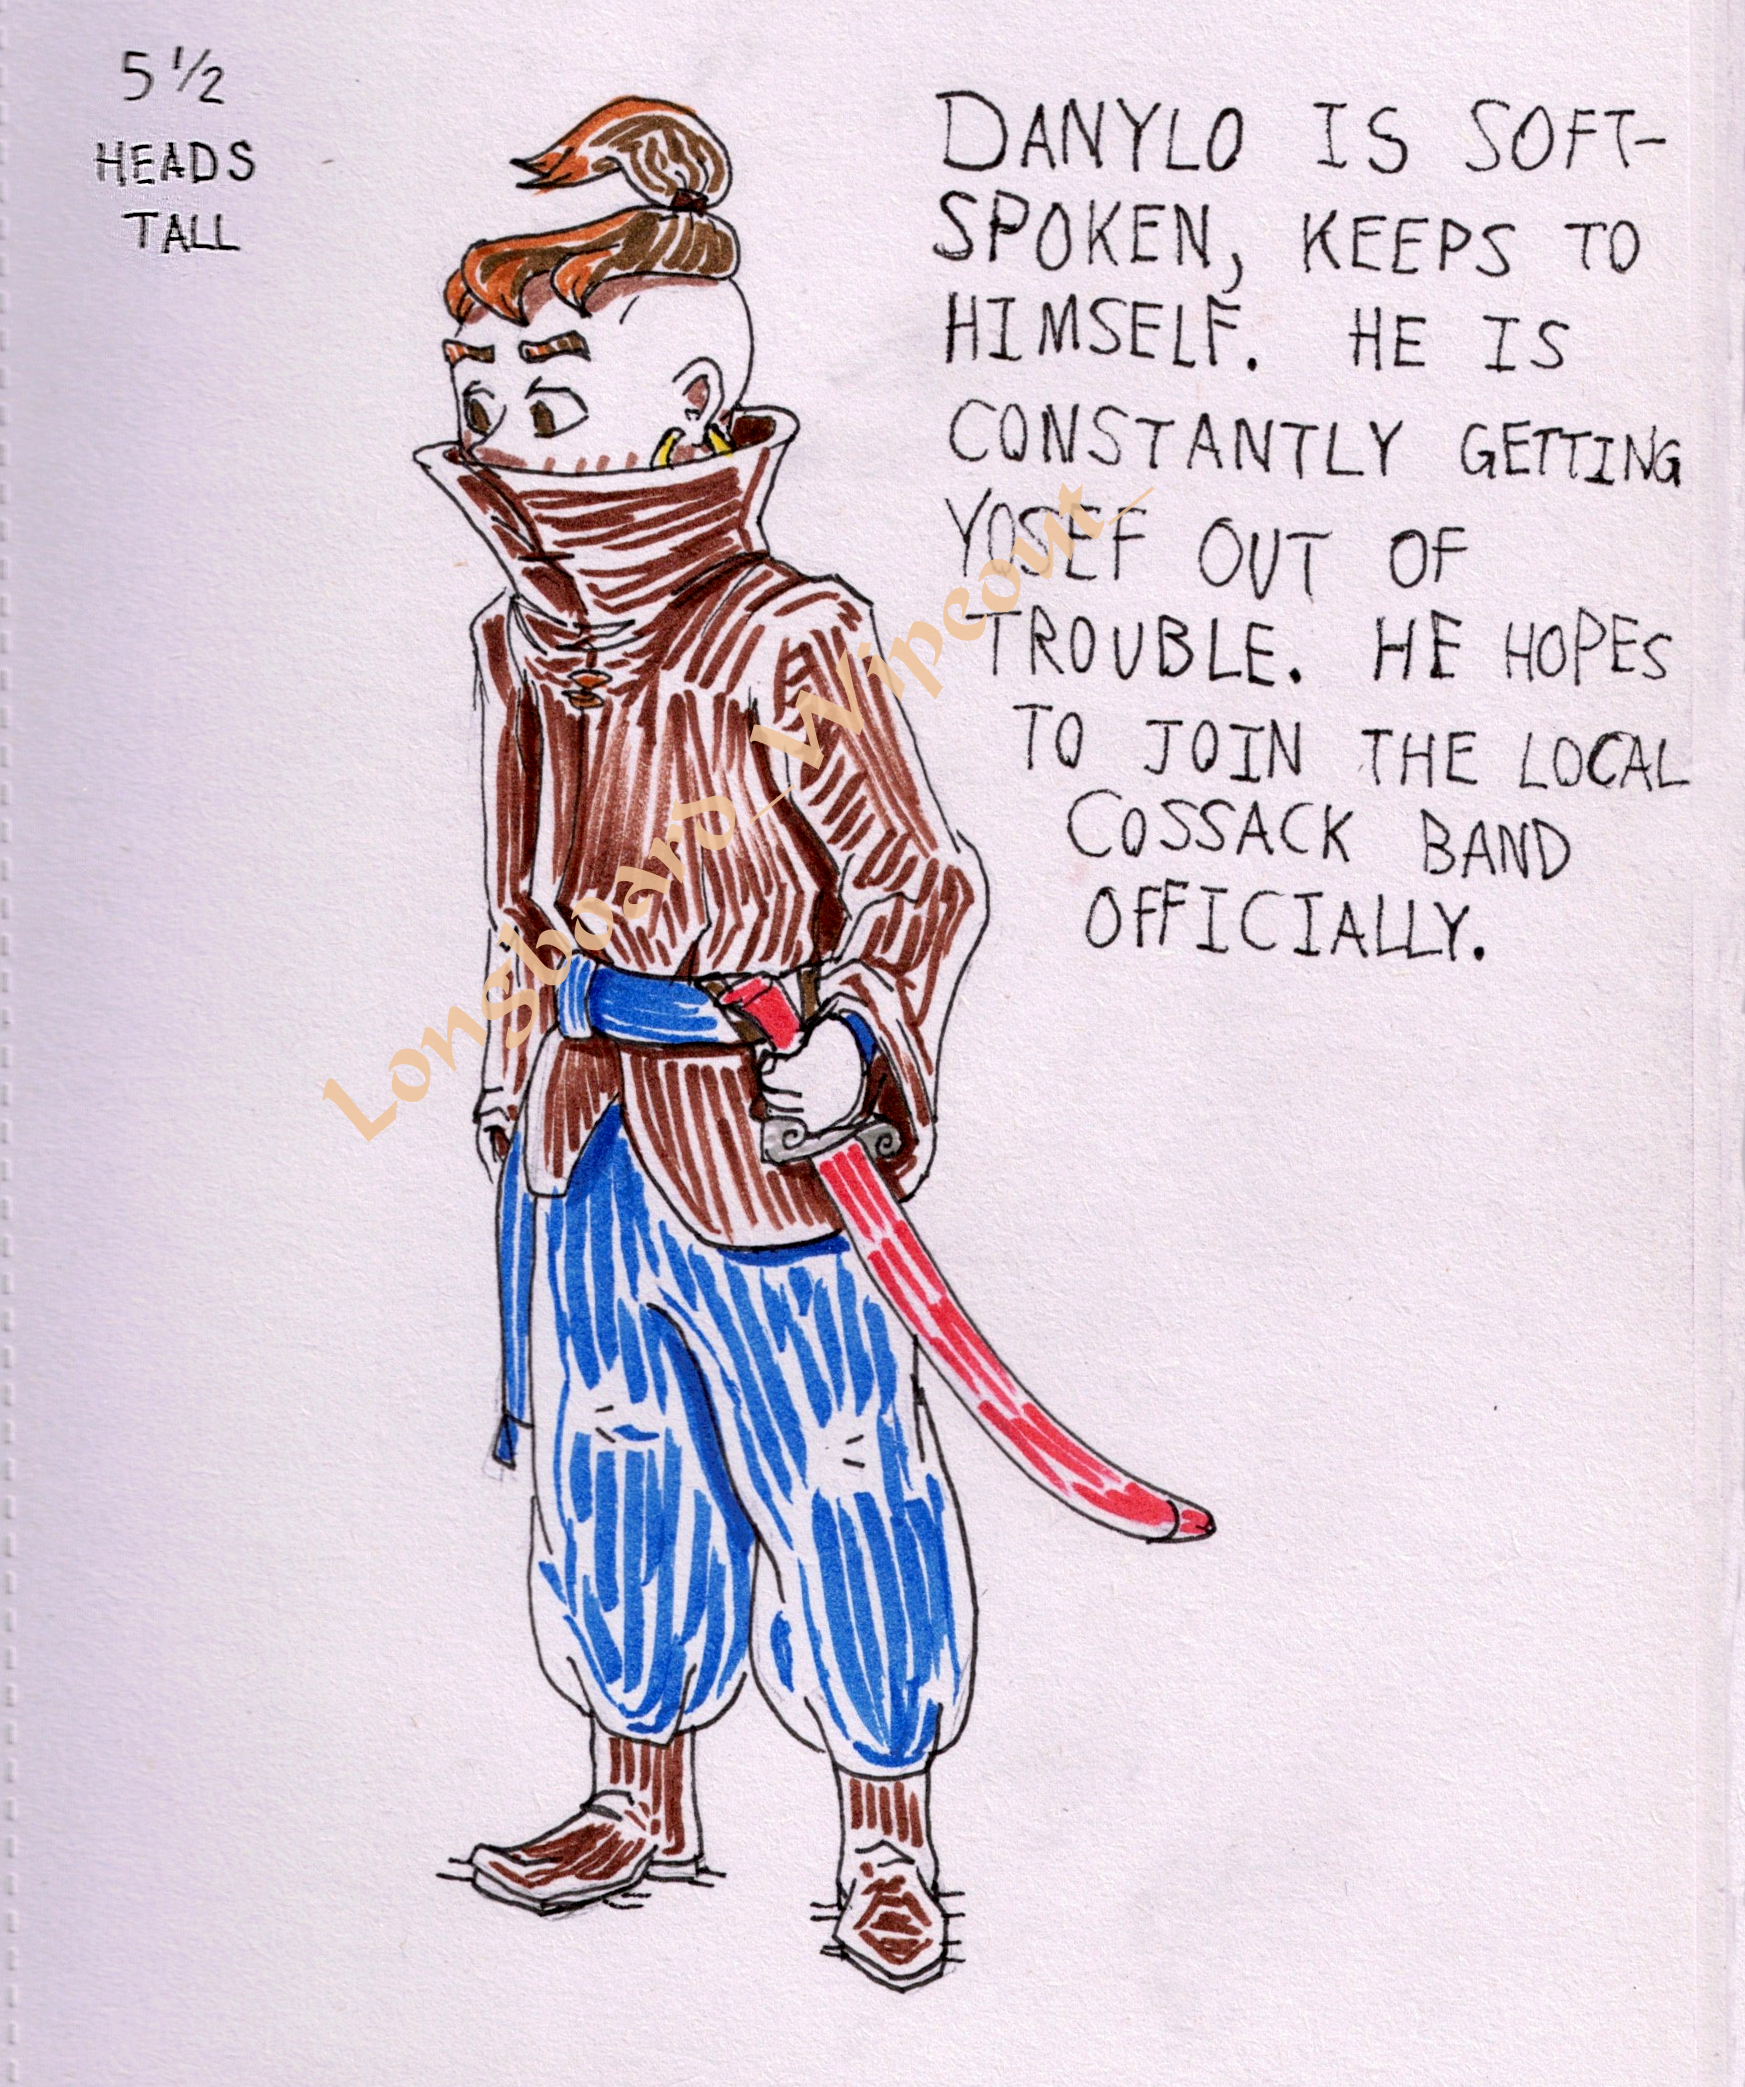 5 1/2
HEADS
TALL
DANYLO IS SOFT-
SPOKEN, KEEPS TO
HIMSELF. HE IS
CONSTANTLY GETTING
YOSEF OUT OF
TROUBLE. HE HOPES
TO JOIN THE LOCAL
COSSACK BAND
OFFICIALLY.
Longboard_Wipeout_